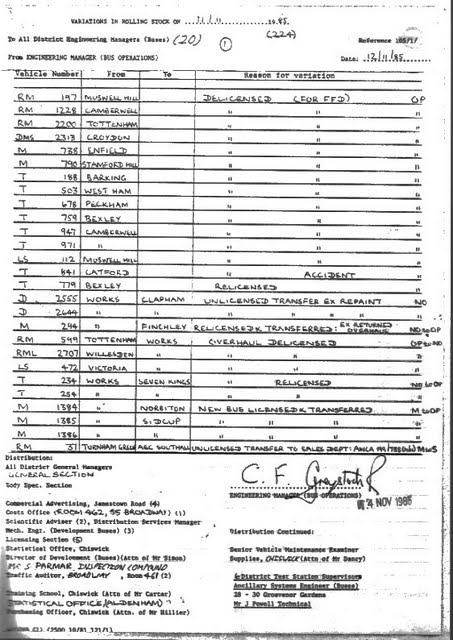 VARIATIONS IN ROLLING STOCK ON 11/11 1985
To All District Engineering Managers (Buses) (20) (1) (224) Reference 105/1/
From ENGINEERING MANAGER (BUS OPERATIONS) Date: 12/11/85
Vehicle Number From To Reason for variation
RM 197 MUSWELL HILL DELICENSED (FOR FFD) OP
RM 1228 CAMBERWELL " " "
RM 2200 TOTTENHAM " " "
DMS 2313 CROYDON " " "
M 738 ENFIELD " " "
M 790 STAMFORD HILL " " "
T 188 BARKING " " "
T 503 WEST HAM " " "
T 678 PECKHAM " " "
T 759 BEXLEY " " "
T 947 CAMBERWELL " " "
T 971 " " " "
LS 112 MUSWELL HILL " " "
T 841 CATFORD " ACCIDENT "
T 779 BEXLEY RELICENSED "
D 2555 WORKS CLAPHAM UNLICENSED TRANSFER EX REPAINT NO
D 2644 " " " " " " "
M 294 " FINCHLEY RELICENSED & TRANSFERRED: EX RETURNED OVERHAUL NO to OP
RM 549 TOTTENHAM WORKS OVERHAUL DELICENSED OP to NO
RML 2707 WILLESDEN " " " "
LS 472 VICTORIA " " " "
T 234 WORKS SEVEN KINGS " RELICENSED NO to OP
T 254 " " " " "
M 1384 " NORBITON NEW BUS LICENSED & TRANSFERRED M to OP
M 1385 " SIDCUP " " " "
M 1386 " " " " " "
RM 37 TURNHAM GREEN AEC SOUTHALL UNLICENSED TRANSFER TO SALES DEPT:
Distribution:
All District General Managers
GENERAL SECTION
Body Spec. Section
C. F.
ENGINEERING MANAGER (BUS OPERATIONS)
4 NOV 1985
Commercial Advertising, Jamestown Road (4)
Costs Office (ROOM 462, 55 BROADWAY) (1)
Scientific Adviser (2), Distribution Services Manager
Mech. Engr. (Development Buses) (3)
Licensing Section (5)
Statistical Office, Chiswick
Director of Development (Buses)(Attn of Mr Simon)
MR S PARMAR INSPECTION COMPOUND
Traffic Auditor, BROADWAY, Room (2)
Training School, Chiswick (Attn of Mr Carter)
STATISTICAL OFFICE (ALDENHAM)
Purchasing Officer, Chiswick (Attn. of Mr Hillier)
Distribution Continued:
Senior Vehicle Maintenance Examiner
Supplies, CHISWICK (Attn of Mr Dancy)
6 District Test Station Supervisors
Ancillary Systems Engineer (Buses)
28 - 30 Grosvenor Gardens
Mr J Powell Technical
(2500 10/81 121/1)